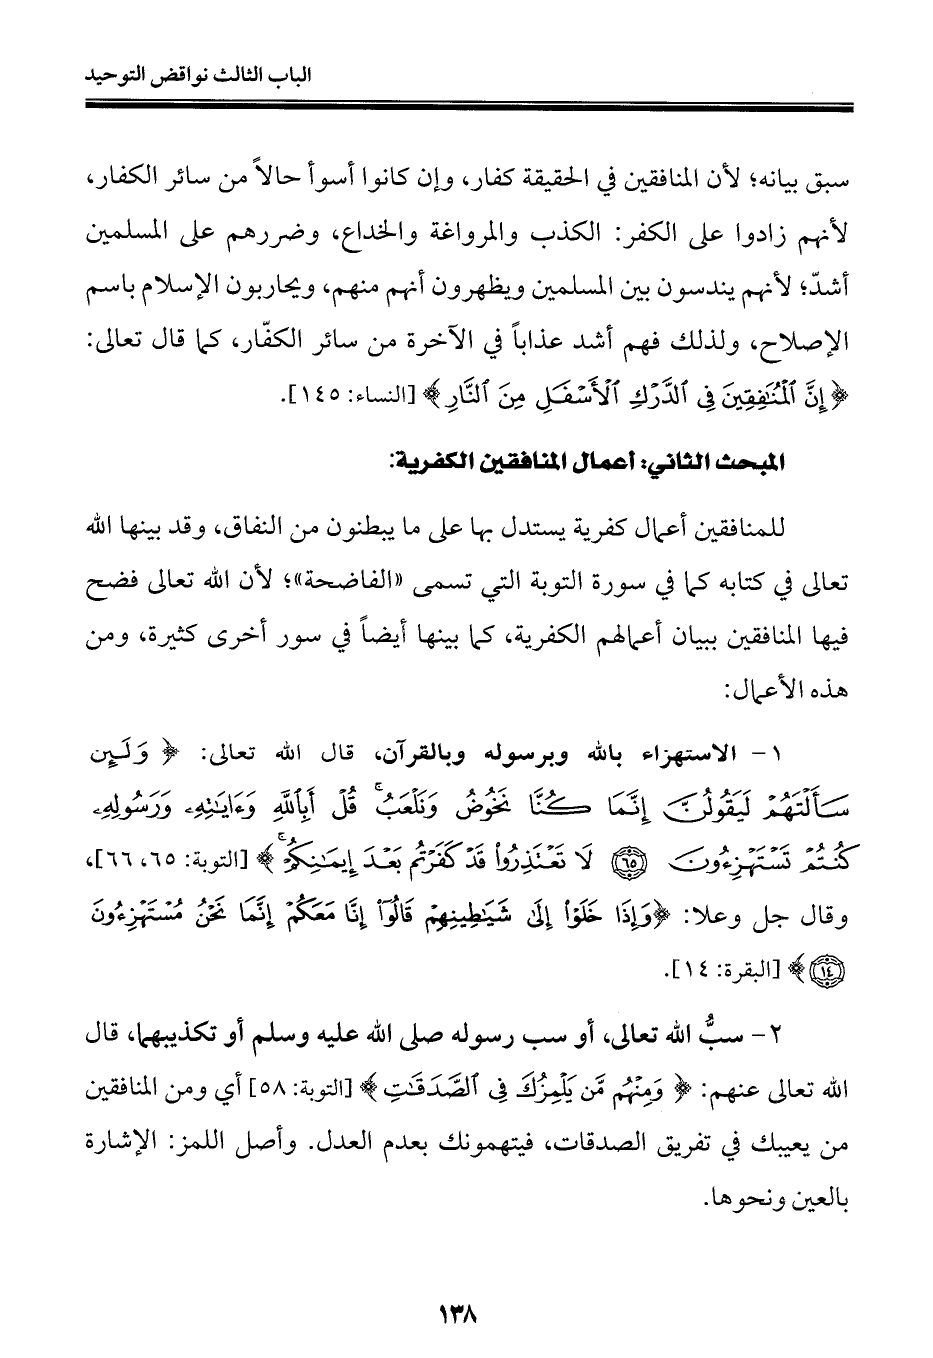 الباب الثالث نواقض التوحيد
سبق بيانه؛ لأن المنافقين في الحقيقة كفار، وإن كانوا أسوأ حالاً من سائر الكفار،
لأنهم زادوا على الكفر: الكذب والمرواغة والخداع، وضررهم على المسلمين
أشدّ؛ لأنهم يندسون بين المسلمين ويظهرون أنهم منهم، ويحاربون الإسلام باسم
الإصلاح، ولذلك فهم أشد عذاباً في الآخرة من سائر الكفّار، كما قال تعالى:
﴿إِنَّ ٱلْمُنَٰفِقِينَ فِى ٱلدَّرْكِ ٱلْأَسْفَلِ مِنَ ٱلنَّارِ﴾ [النساء: ١٤٥].
المبحث الثاني: أعمال المنافقين الكفرية:
للمنافقين أعمال كفرية يستدل بها على ما يبطنون من النفاق، وقد بينها الله
تعالى في كتابه كما في سورة التوبة التي تسمى «الفاضحة»؛ لأن الله تعالى فضح
فيها المنافقين ببيان أعمالهم الكفرية، كما بينها أيضاً في سور أخرى كثيرة، ومن
هذه الأعمال:
١- الاستهزاء بالله وبرسوله وبالقرآن، قال الله تعالى: ﴿وَلَئِن
سَأَلْتَهُمْ لَيَقُولُنَّ إِنَّمَا كُنَّا نَخُوضُ وَنَلْعَبُ ۚ قُلْ أَبِٱللَّهِ وَءَايَٰتِهِۦ وَرَسُولِهِۦ
كُنتُمْ تَسْتَهْزِءُونَ ﴿٦٥﴾ لَا تَعْتَذِرُوا۟ قَدْ كَفَرْتُم بَعْدَ إِيمَٰنِكُمْ ۚ﴾ [التوبة: ٦٥، ٦٦]،
وقال جل وعلا: ﴿وَإِذَا خَلَوْا۟ إِلَىٰ شَيَٰطِينِهِمْ قَالُوٓا۟ إِنَّا مَعَكُمْ إِنَّمَا نَحْنُ مُسْتَهْزِءُونَ
﴿١٤﴾﴾ [البقرة: ١٤].
٢- سبُّ الله تعالى، أو سب رسوله صلى الله عليه وسلم أو تكذيبهما، قال
الله تعالى عنهم: ﴿وَمِنْهُم مَّن يَلْمِزُكَ فِى ٱلصَّدَقَٰتِ﴾ [التوبة: ٥٨] أي ومن المنافقين
من يعيبك في تفريق الصدقات، فيتهمونك بعدم العدل. وأصل اللمز: الإشارة
بالعين ونحوها.
١٣٨